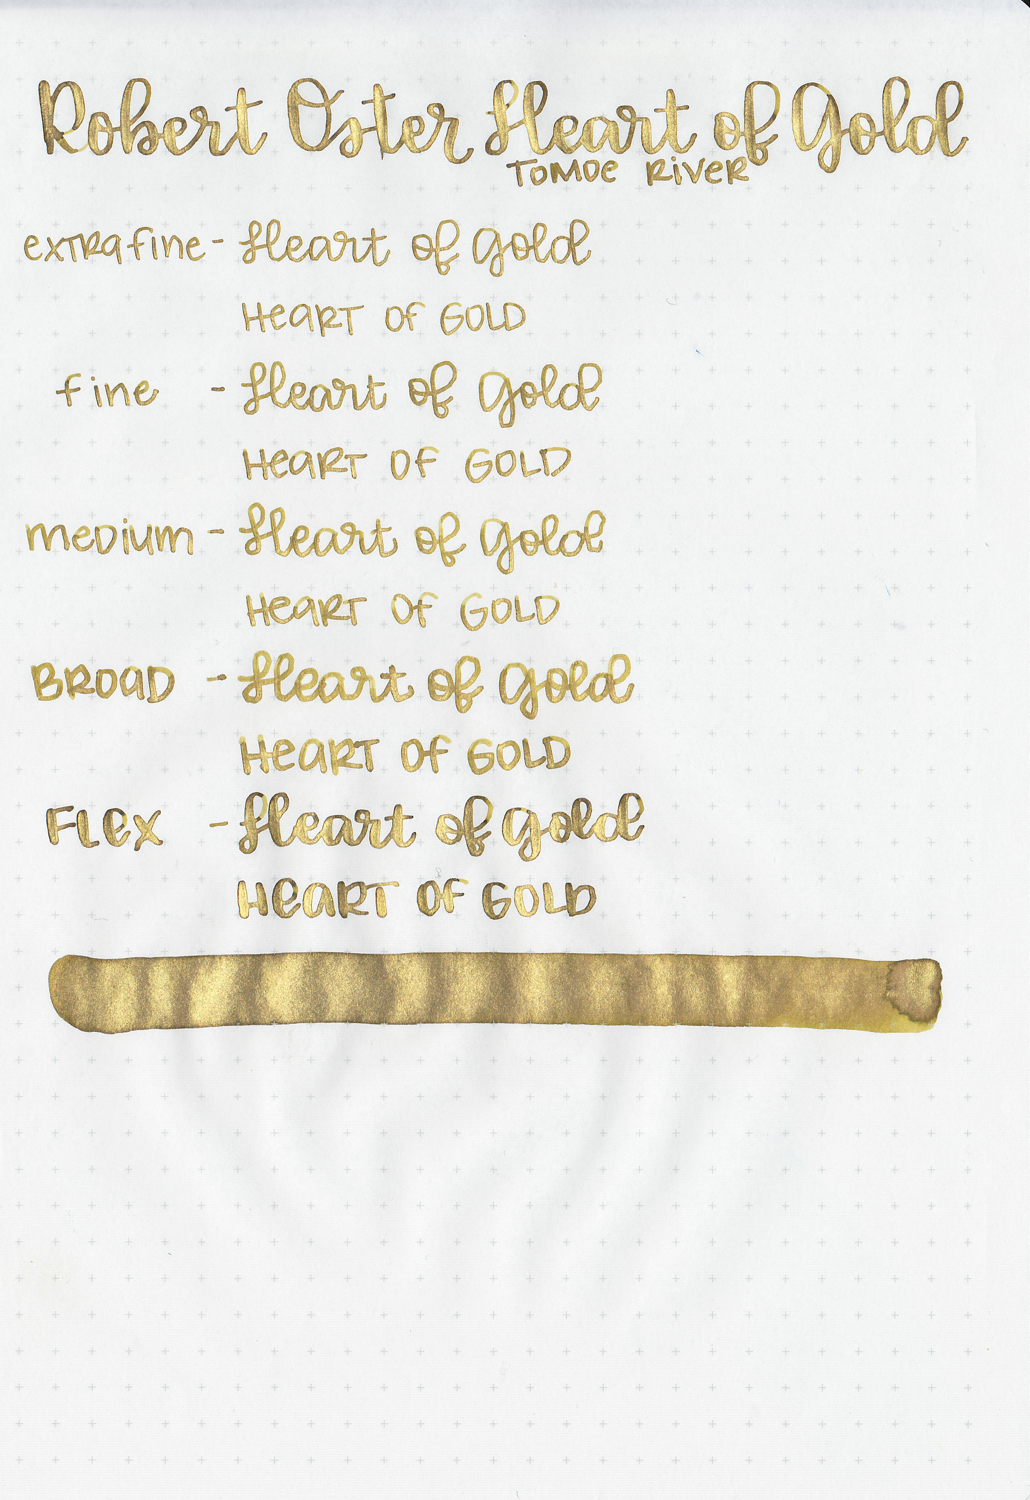 Robert Oster Heart of Gold
TOMOE RIVER
extRa fine - Heart of Gold
HeaRT OF GOLD
fine - Heart of Gold
HeaRT OF GOLD
meDium - Heart of Gold
HeaRT OF GOLD
BROaD - Heart of Gold
HeaRT OF GOLD
FLex - Heart of Gold
HeaRT OF GOLD